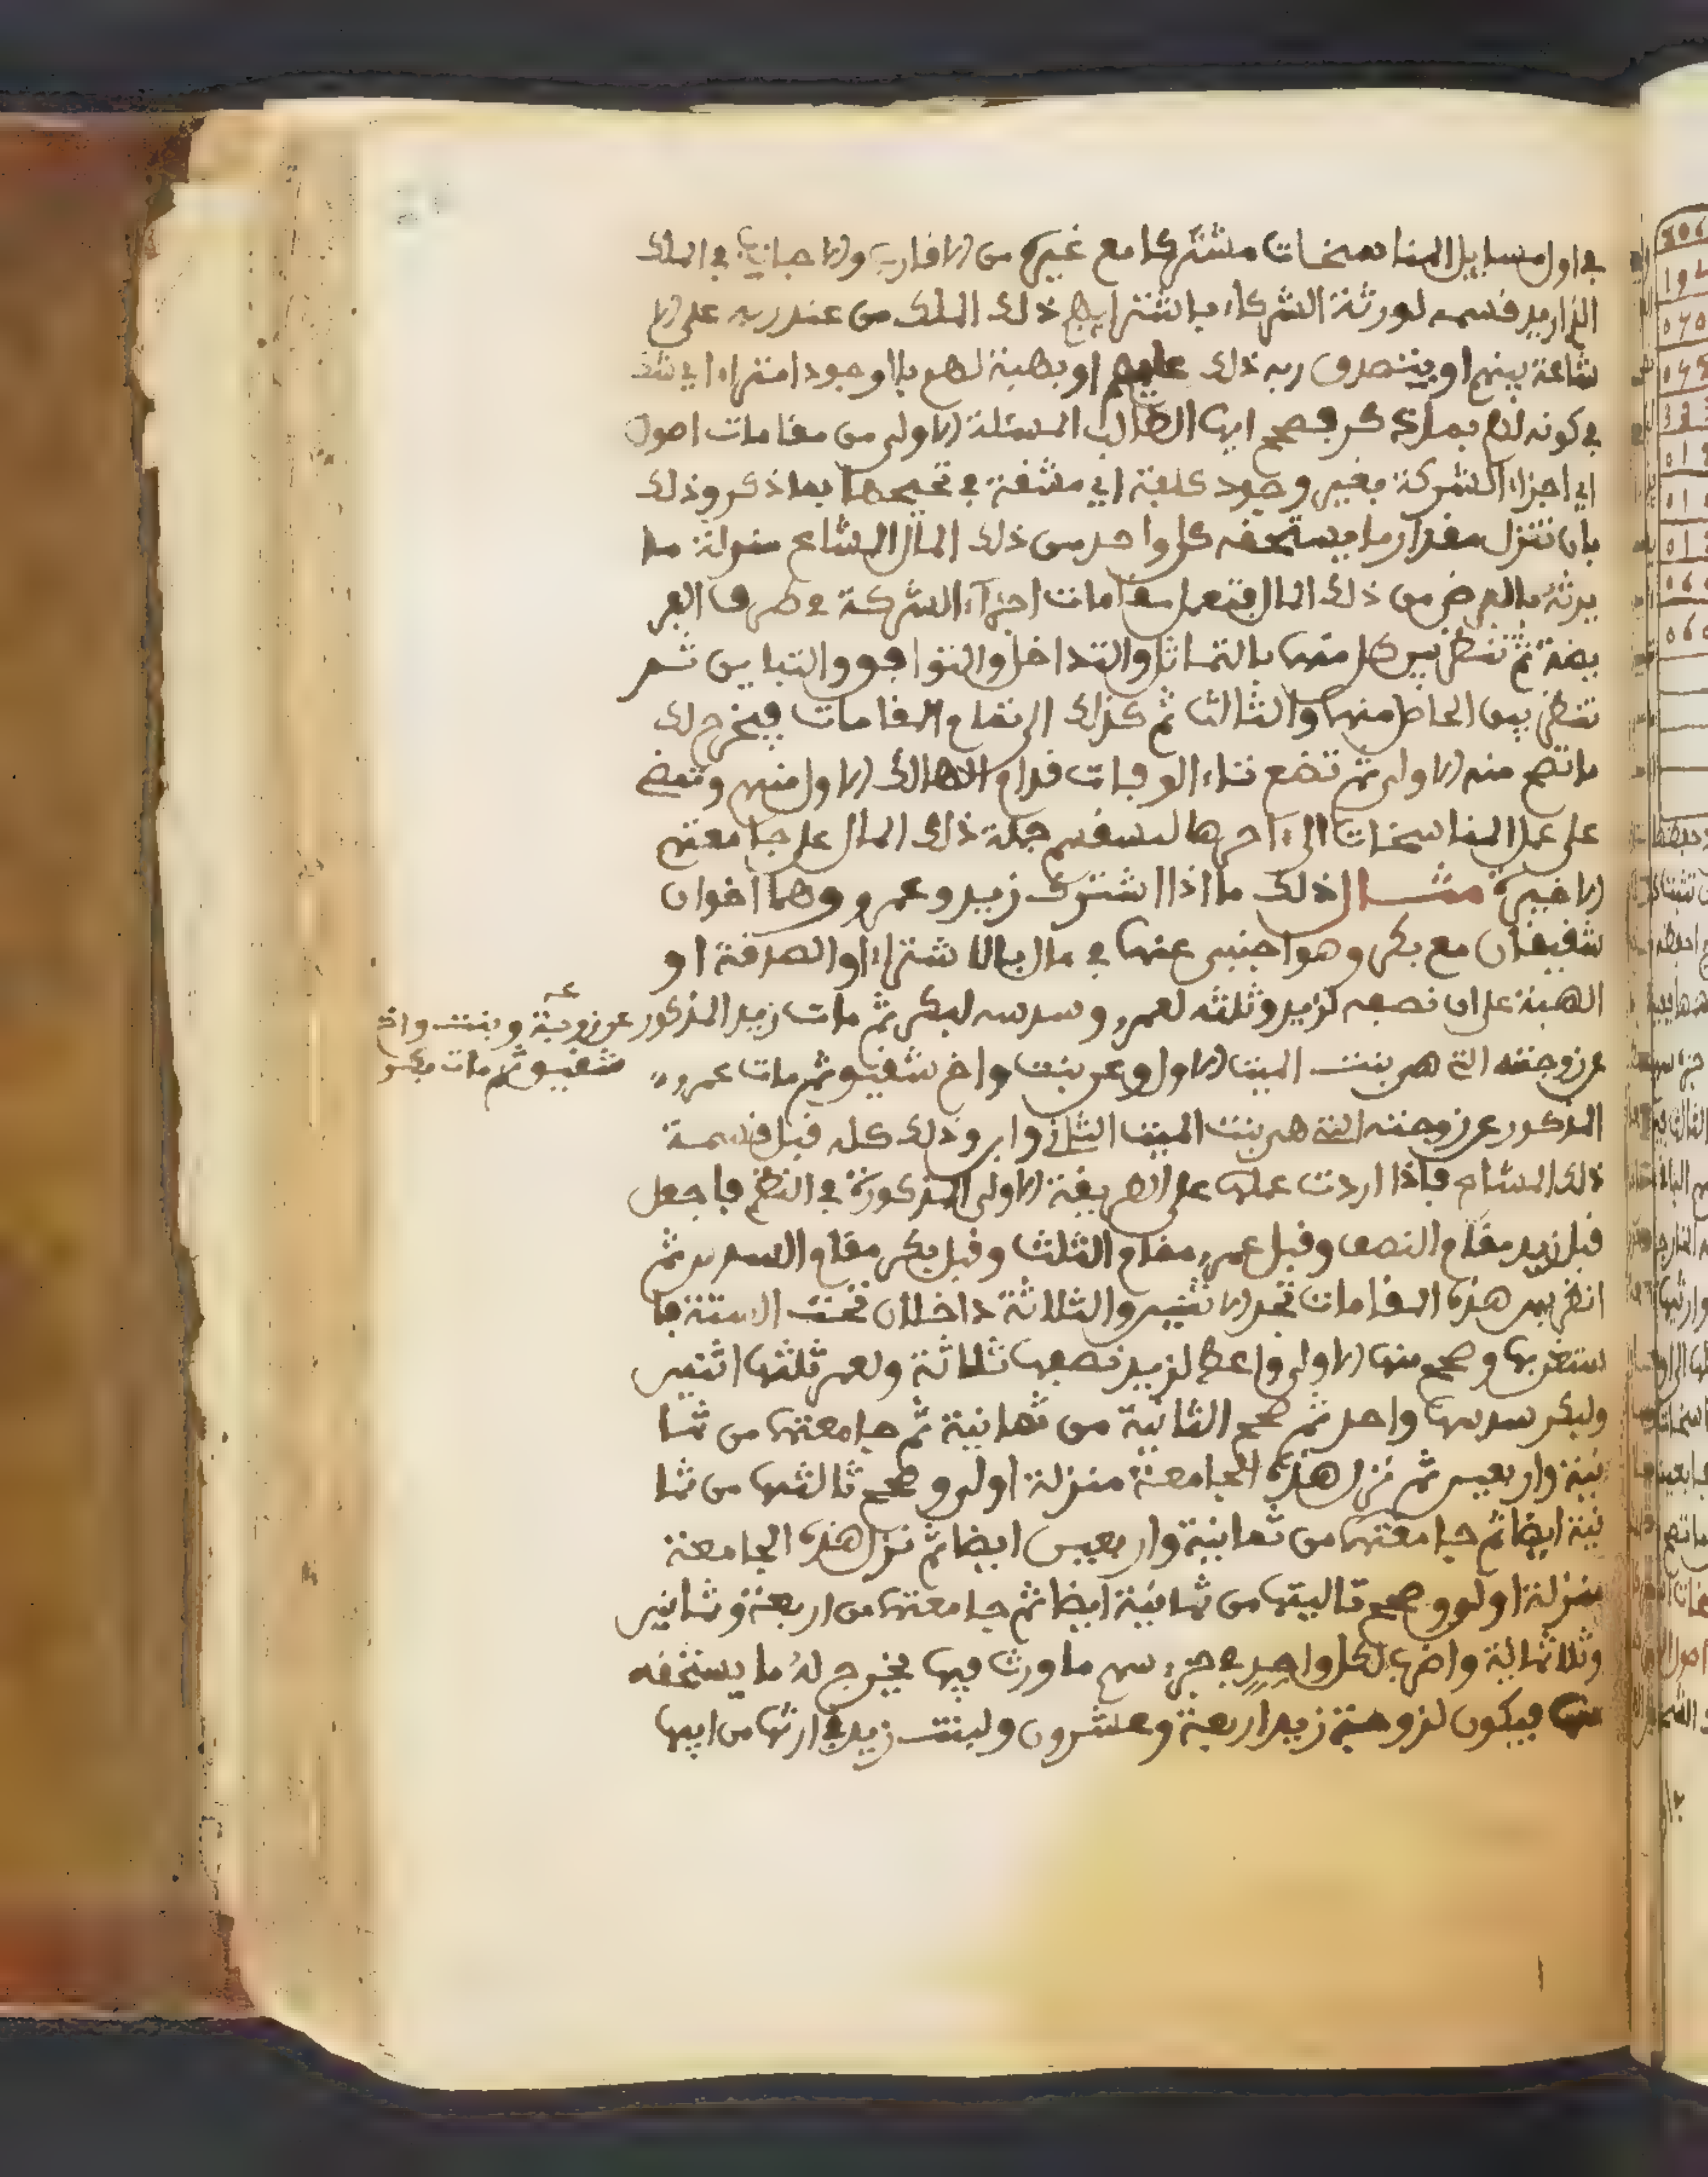 في اول مسايل المناسخات مشتركا مع غيره من الاقارب والاجانب في الملك
الذي اريد قسمه لورثة الشركاء باشترايهم ذلك الملك من عند ربه على الا
شاعة بينهم او يتصدق ربه ذلك عليهم او بهبة لهم بلا وجود امتراء اي شك
في كونه لهم بما ذكر فصحح ايها الطالب المسئلة الاولى من مقامات اصول
اي اجزاء الشركة بغير وجود كلفة اي مشقة في تصحيحها بما ذكر وذلك
بان تنزل مقدار ما يستحقه كل واحد من ذلك المال المشاع منزلة ما
يرثه بالفرض من ذلك المال فتجعل مقامات اجزاء الشركة في طرف الفر
يضة ثم تنظر بين كل منها بالتماثل والتداخل والتوافق والتباين ثم
تنظر بين الحاصل منها والثالث ثم كذلك الى تمام المقامات فيخرج لك
ما تصح منه الاولى ثم تضع تاء الوفات قدام الهالك الاول منهم وتمضي
على عمل المناسخات الى آخرها لتنقسم جملة ذلك المال على جامعتهم
الاخيرة مثال ذلك ما اذا اشترك زيد وعمرو وهما اخوان
شقيقان مع بكر وهو اجنبي عنهما في مال بالاشتراء او الصدقة او
الهبة على ان نصفه لزيد وثلثه لعمرو وسدسه لبكر ثم مات زيد المذكور عن زوجة وبنت واخ
شقيق ثم مات بكر
عن زوجته التي هي بنت الميت الاول وعن بنت واخ شقيق ثم مات عمرو
المذكور عن زوجته التي هي بنت الميت الثاني وابن وذلك كله قبل قسمة
ذلك المشاع فاذا اردت عملها على الطريقة الاولى المذكورة في النظم فاجعل
قبل زيد مقام النصف وقبل عمرو مقام الثلث وقبل بكر مقام السدس ثم
انظر بين هذه المقامات تجد الاثنين والثلاثة داخلان تحت الستة فا
ستغن بها وصحح منها الاولى واعط لزيد نصفها ثلاثة ولعمر ثلثها اثنين
ولبكر سدسها واحد ثم صحح الثانية من ثمانية ثم جامعتهما من ثما
نية واربعين ثم نزل هذه الجامعة منزلة اولى وصحح ثالثتها من ثما
نية ايضا ثم جامعتهما من ثمانية واربعين ايضا ثم نزل هذه الجامعة
منزلة اولى وصحح تاليتها من ثمانية ايضا ثم جامعتهما من اربعة وثمانين
وثلاثماية واضرب لكل واحد في جزء سهم ما ورث فيها يخرج له ما يستحقه
منها فيكون لزوجة زيد اربعة وعشرون ولبنت زيد في ارثها من ابيها